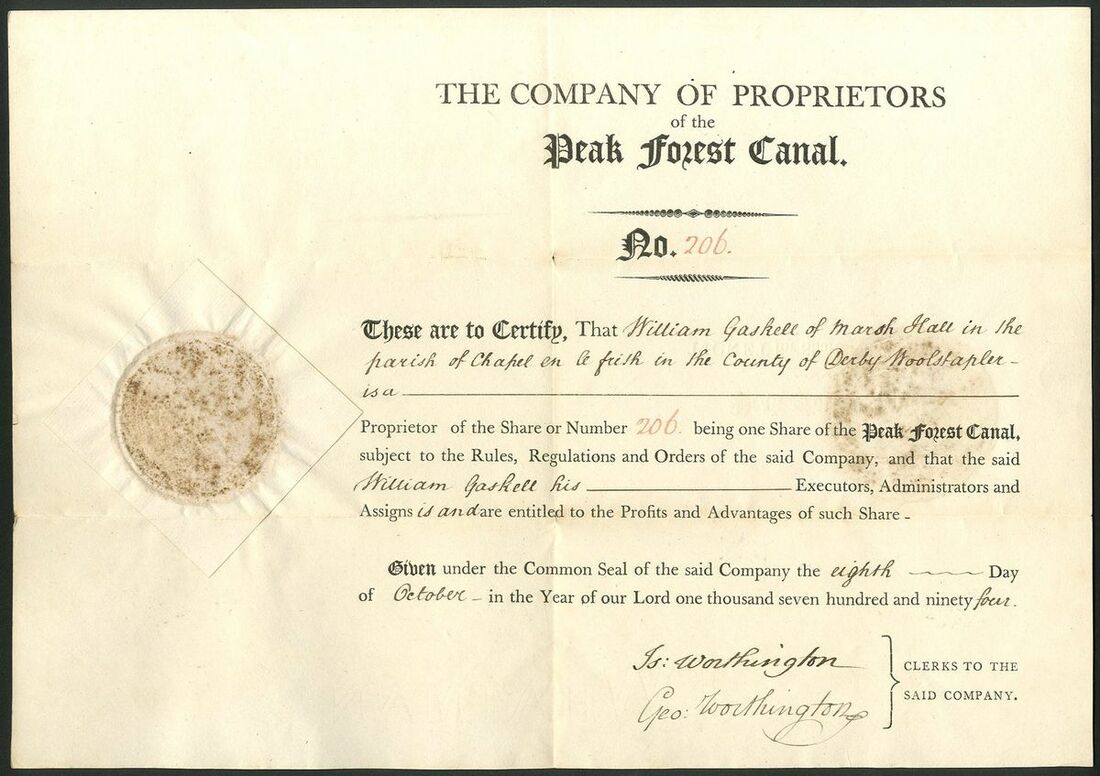 THE COMPANY OF PROPRIETORS
of the
Peak Forest Canal.
No. 206.
These are to Certify, That William Gaskell of Marsh Hall in the
parish of Chapel en le frith in the County of Derby Woolstapler -
is a
Proprietor of the Share or Number 206. being one Share of the Peak Forest Canal,
subject to the Rules, Regulations and Orders of the said Company, and that the said
William Gaskell his Executors, Administrators and
Assigns is and are entitled to the Profits and Advantages of such Share -
Given under the Common Seal of the said Company the eighth Day
of October - in the Year of our Lord one thousand seven hundred and ninety four.
Is: Worthington
Geo: Worthington
CLERKS TO THE
SAID COMPANY.